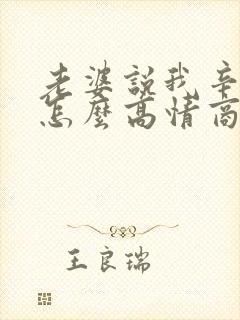 老婆說我辛
怎麼高情商
王良瑞